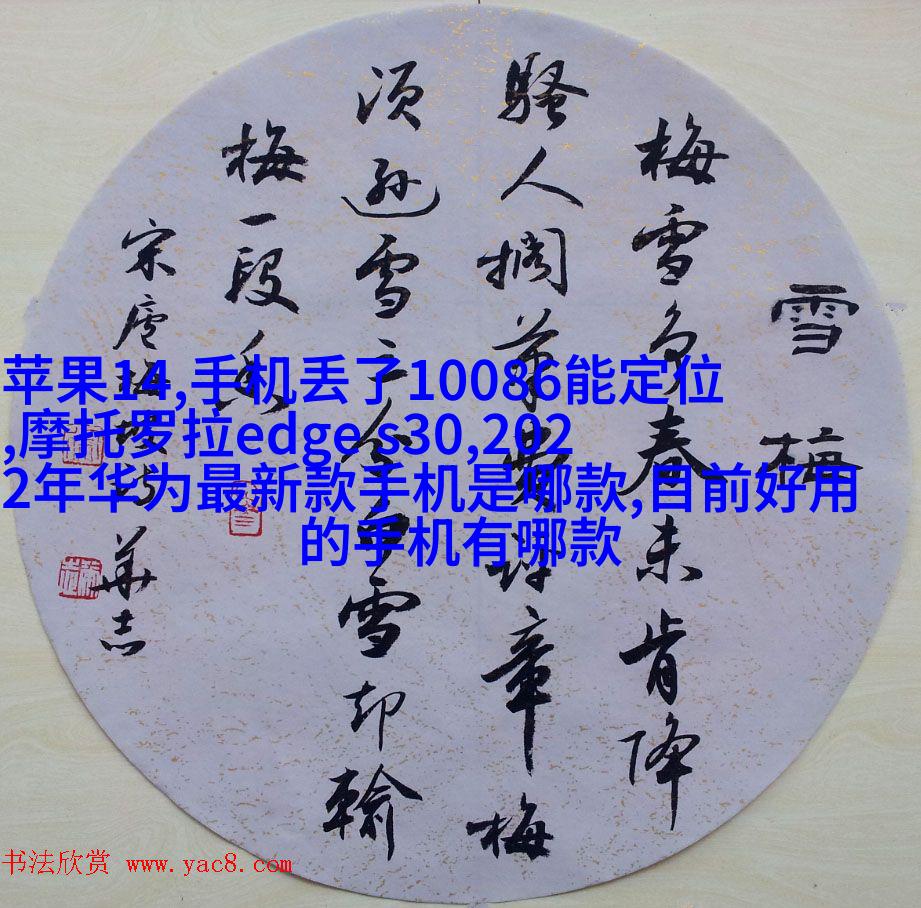 雪梅
梅雪争春未肯降
騷人擱筆費評章梅
須遜雪三分白雪却輸
梅一段香
宋盧梅坡詩 華志
苹果14,手机丢了10086能定位
,摩托罗拉edge s30,202
2年华为最新款手机是哪款,目前好用
的手机有哪款
书法欣赏 www.yac8.com